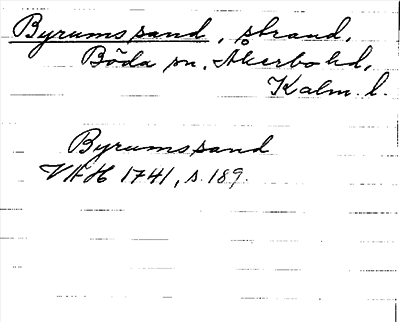 Byrums sand, strand,
Böda sn. Åkerbo hd,
Kalm. l.
Byrums sand
VAH 1741, s. 189.